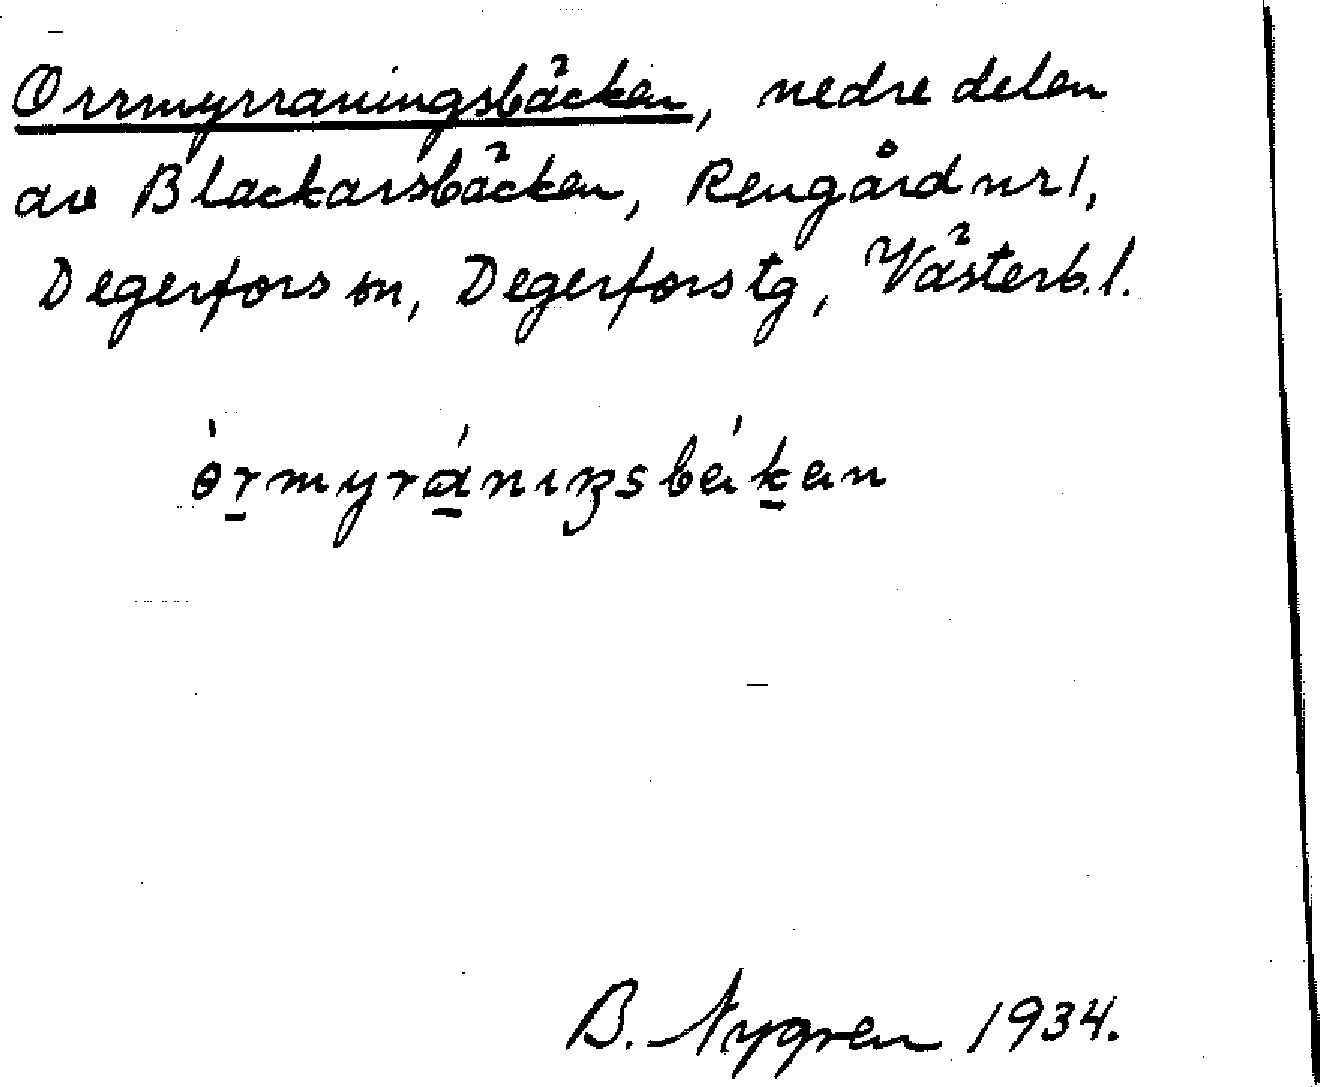 Orrmyrraningsbäcken, nedre delen
av Blackarsbäcken, Rengård nr 1,
Degerfors sn, Degerfors tg, Västerb.l.
B. Nygren 1934.